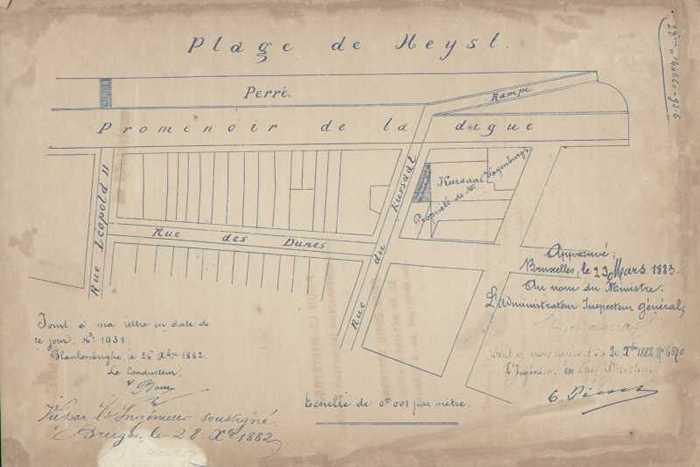 Plage de Heyst.
Perré.
Rampe
Promenoir de la digue
Rue Léopold II
Rue des Dunes
Rue du Kursaal
Kursaal
Propriété de Mr Wagenburgh
Approuvé:
Bruxelles, le 23 Mars 1883.
Au nom du Ministre.
L'Administrateur Inspecteur général,
Joint à ma lettre en date de
ce jour, No 1031.
Blankenberghe, le 26 Xbre 1882.
Le Conducteur.
Vu par l'Ingénieur soussigné
Bruges, le 28 Xbre 1882
Echelle de 0m 001 par mètre.
30 Xbre 1882 No 6870
L'Ingénieur en Chef Directeur